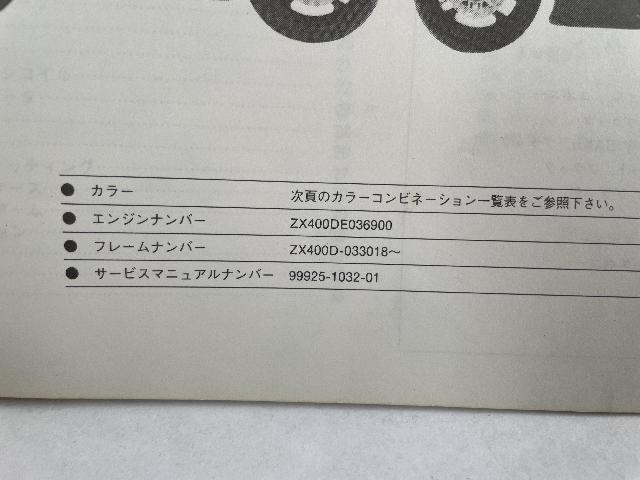 ● カラー 次頁のカラーコンビネーション一覧表をご参照下さい。
● エンジンナンバー ZX400DE036900
● フレームナンバー ZX400D-033018〜
● サービスマニュアルナンバー 99925-1032-01